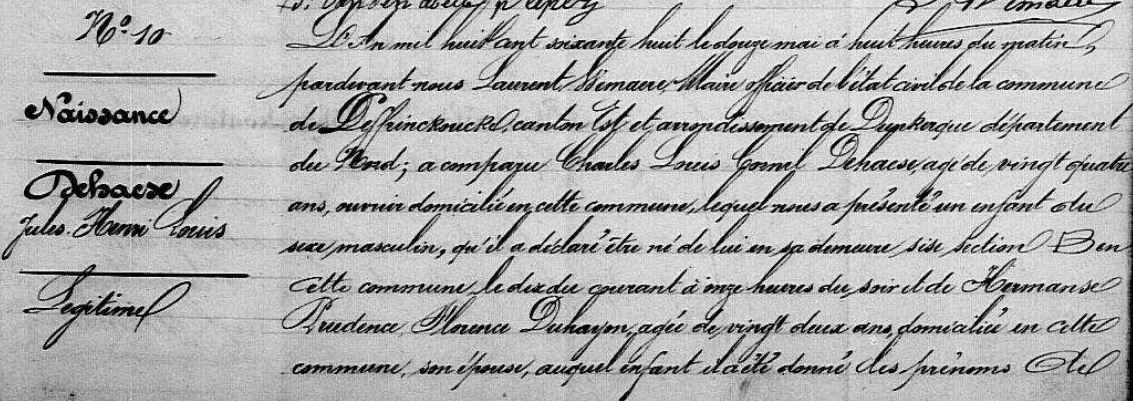 N.o 10
Naissance
Dehaese
Jules Henri Louis
Légitime
L'An mil huit cent soixante huit le douze mai à huit heures du matin,
pardevant nous Laurent Wemaere Maire officier de l'état civil de la commune
de Leffrinckoucke, canton Est et arrondissement de Dunkerque département
du Nord; a comparu Charles Louis Cornil Dehaese, agé de vingt quatre
ans, ouvrier domicilié en cette commune, lequel nous a présenté un enfant du
sexe masculin, qu'il a déclaré être né de lui en sa demeure sise section B en
cette commune le dix du courant à onze heures du soir et de Hermanse
Prudence Florence Duhayon, agée de vingt deux ans, domiciliée en cette
commune, son épouse, auquel enfant il a été donné les prénoms de